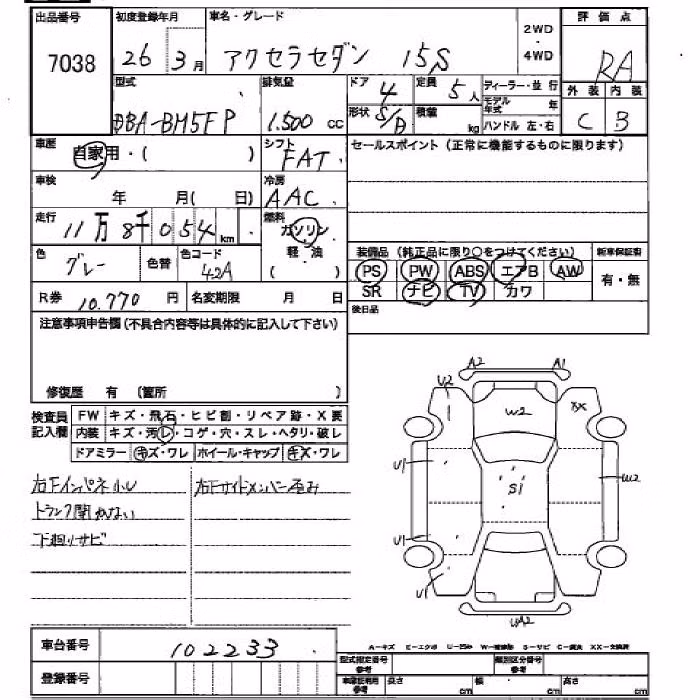 出品番号 初度登録年月 車名・グレード 評価点
7038 26 3月 アクセラセダン 15S 2WD・4WD RA
型式 排気量 ドア 4 定員 5人 ディーラー・並行 外装 内装
DBA-BM5FP 1.500 cc 形状 S/D 積載 kg モデル年式 年 ハンドル 左・右 C B
車歴 自家用・( ) シフト FAT セールスポイント (正常に機能するものに限ります)
車検 年 月( 日) 冷房 AAC
走行 11万8千054km 燃料 ガソリン 軽・油 ( )
色 グレー 色替 色コード 42A 装備品 (純正品に限り○をつけてください) 新車保証書
PS PW ABS エアB AW 有・無
R券 10.770円 名変期限 月 日 SR ナビ TV カワ
注意事項申告欄(不具合内容等は具体的に記入して下さい) 後日品
修復歴 有 (箇所 )
検査員記入欄 FW キズ・飛石・ヒビ割・リペア跡・X要
内装 キズ・汚レ・コゲ・穴・スレ・ヘタリ・破レ
ドアミラー キズ・ワレ ホイール・キャップ キズ・ワレ
右Fインパネ小U 右Fサイドメンバー歪み
トランク閉めない
下廻りサビ
A2 A1
U2 W2 XX
U1 S1 W2
U1
U1
WA2
車台番号 102233
A-キズ E-エクボ U-凹み W-補修跡 S-サビ C-腐食 XX-交換済
登録番号 型式指定番号 参考 類別区分番号 参考
車庫証明用 参考 長さ cm 幅 cm 高さ cm